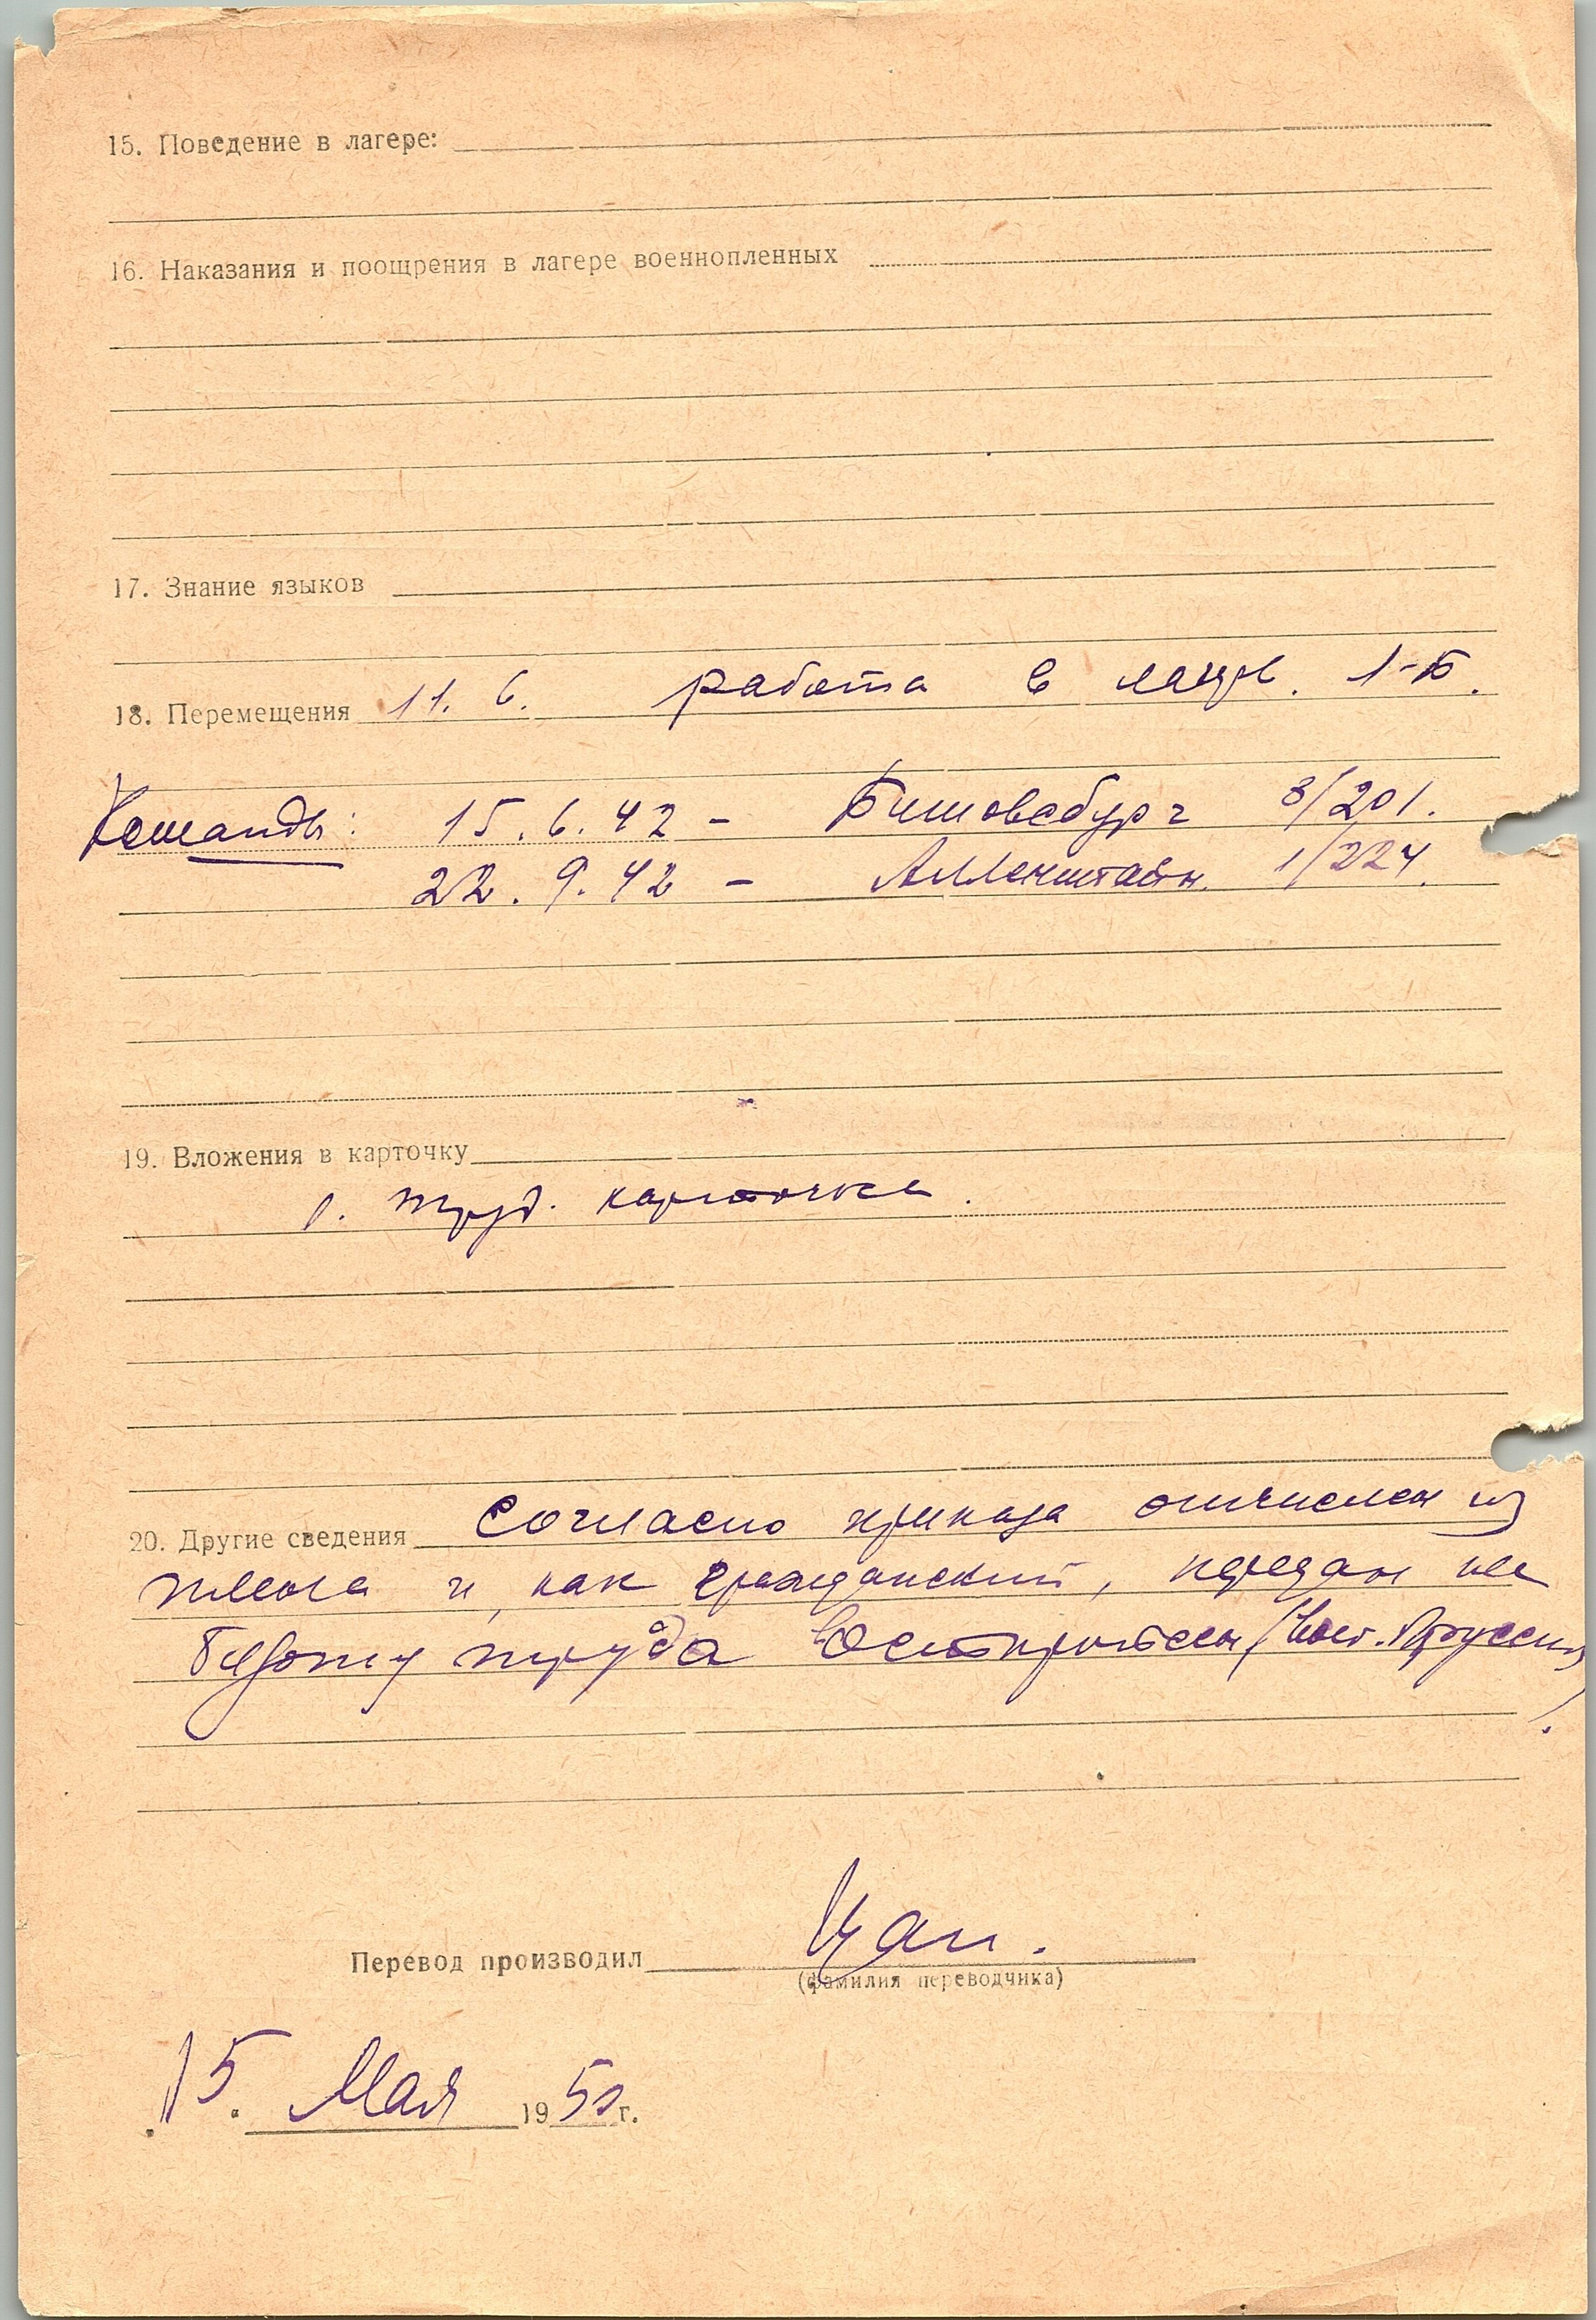 15. Поведение в лагере:
16. Наказания и поощрения в лагере военнопленных
17. Знание языков
18. Перемещения 11. 6. работа в лагере. 1-Б.
Команды: 15. 6. 42 - Бишовсбург 3/201.
22. 9. 42 - Алленштайн 1/224.
19. Вложения в карточку
1. труд. карточка.
20. Другие сведения Согласно приказа отчислен из
плена и, как гражданский, передан на
биржу труда в Остпройссен (Вост. Пруссия).
Перевод производил
(фамилия переводчика)
15. Мая 1950 г.